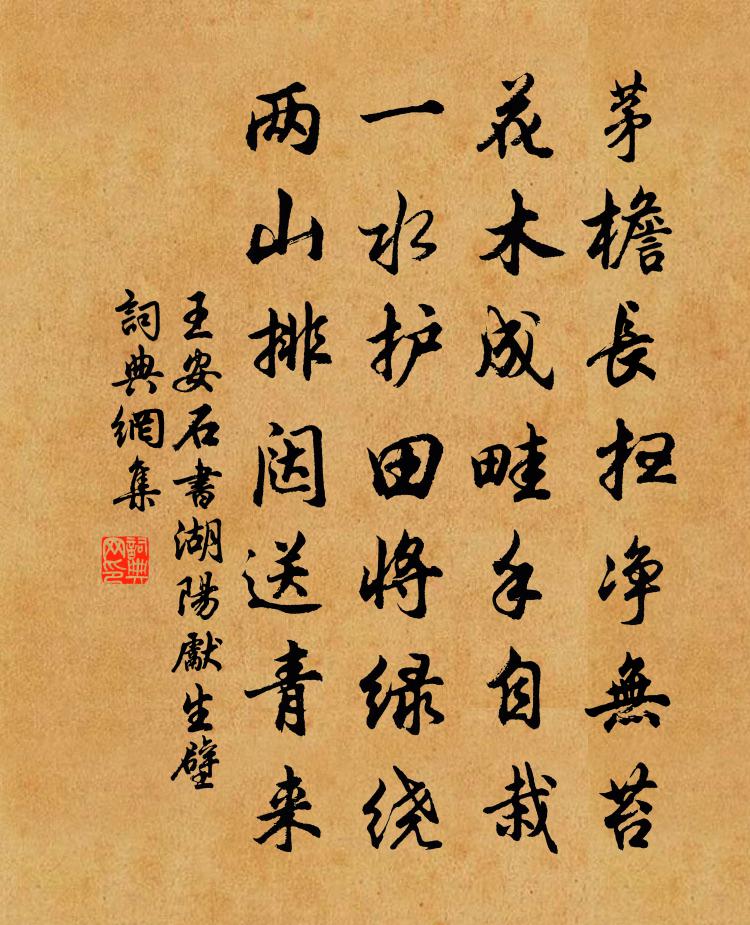 茅檐長扫净無苔
花木成畦手自栽
一水护田将绿绕
两山排闼送青来
王安石書湖陽獻生壁
詞典網集
詞典网印